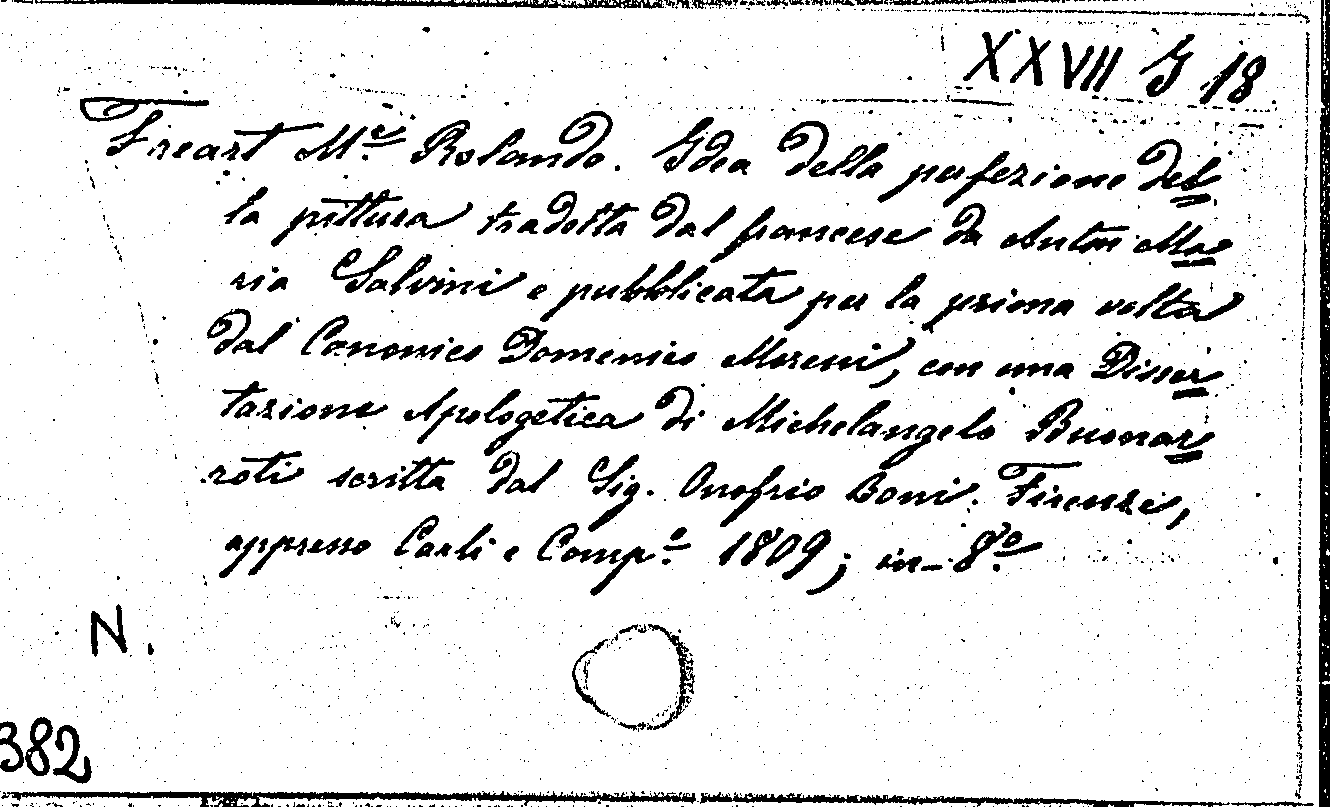 XXVII G 18
Freart M.r Rolando. Idea della perfezione del=
la pittura tradotta dal francese da Anton Ma=
ria Salvini e pubblicata per la prima volta
dal Canonico Domenico Moreni, con una Disser=
tazione Apologetica di Michelangelo Buonar=
roti scritta dal Sig. Onofrio Boni. Firenze,
appresso Carli e Comp.o 1809; in-8.vo
N.
382